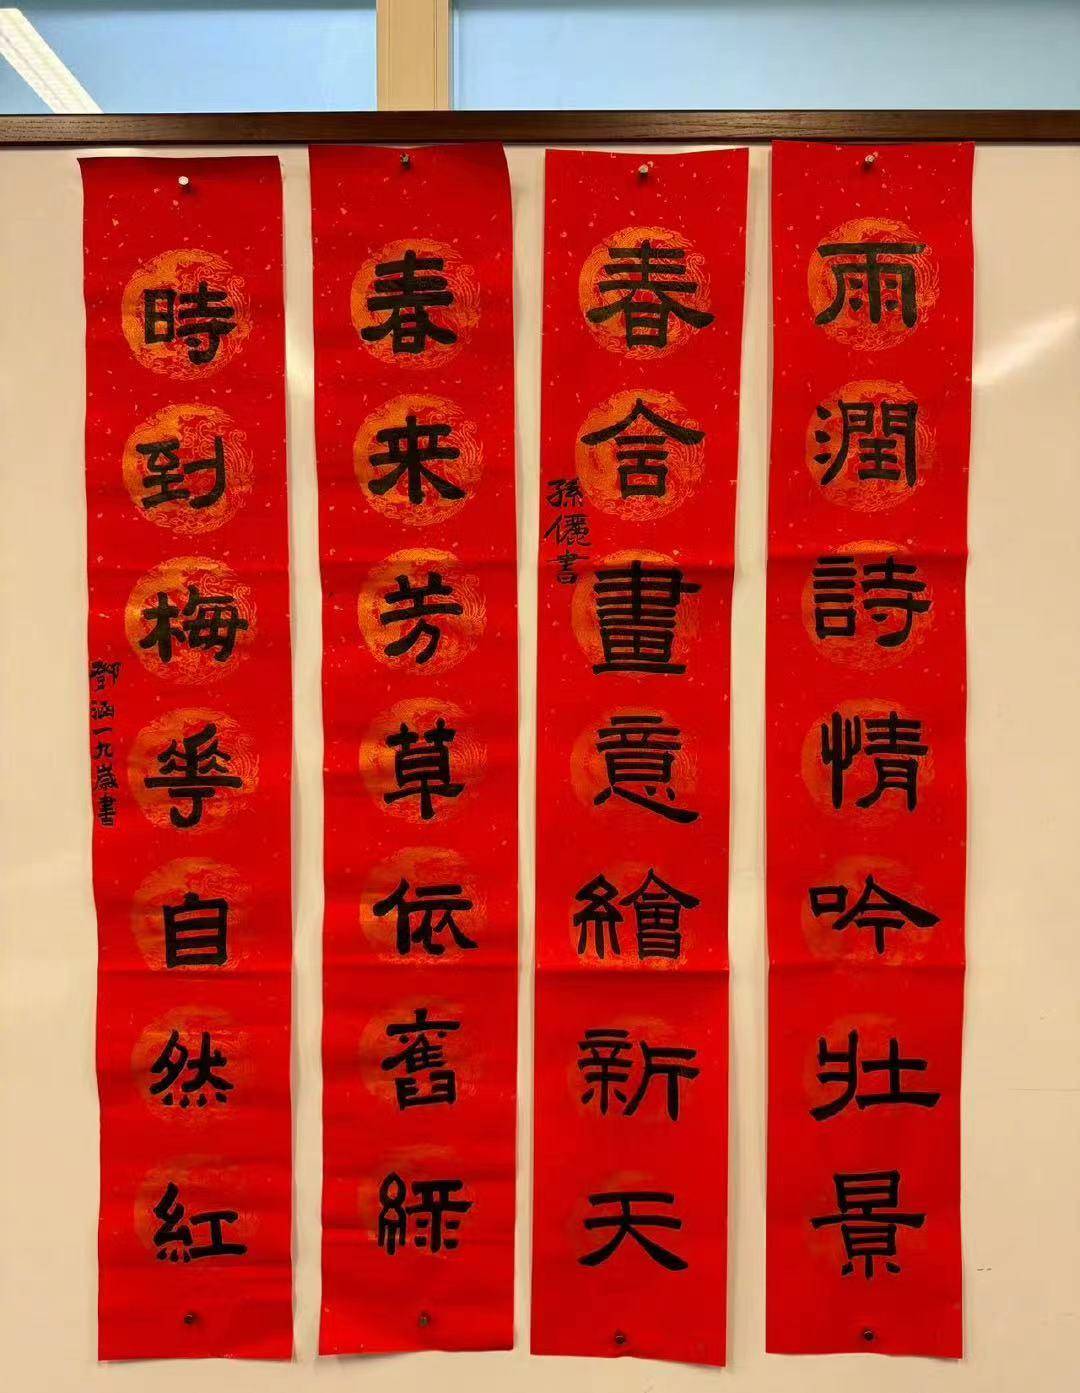 雨潤詩情吟壯景
春含畫意繪新天
孫儷書
春来芳草依舊綠
時到梅華自然紅
鄧涵一九歲書